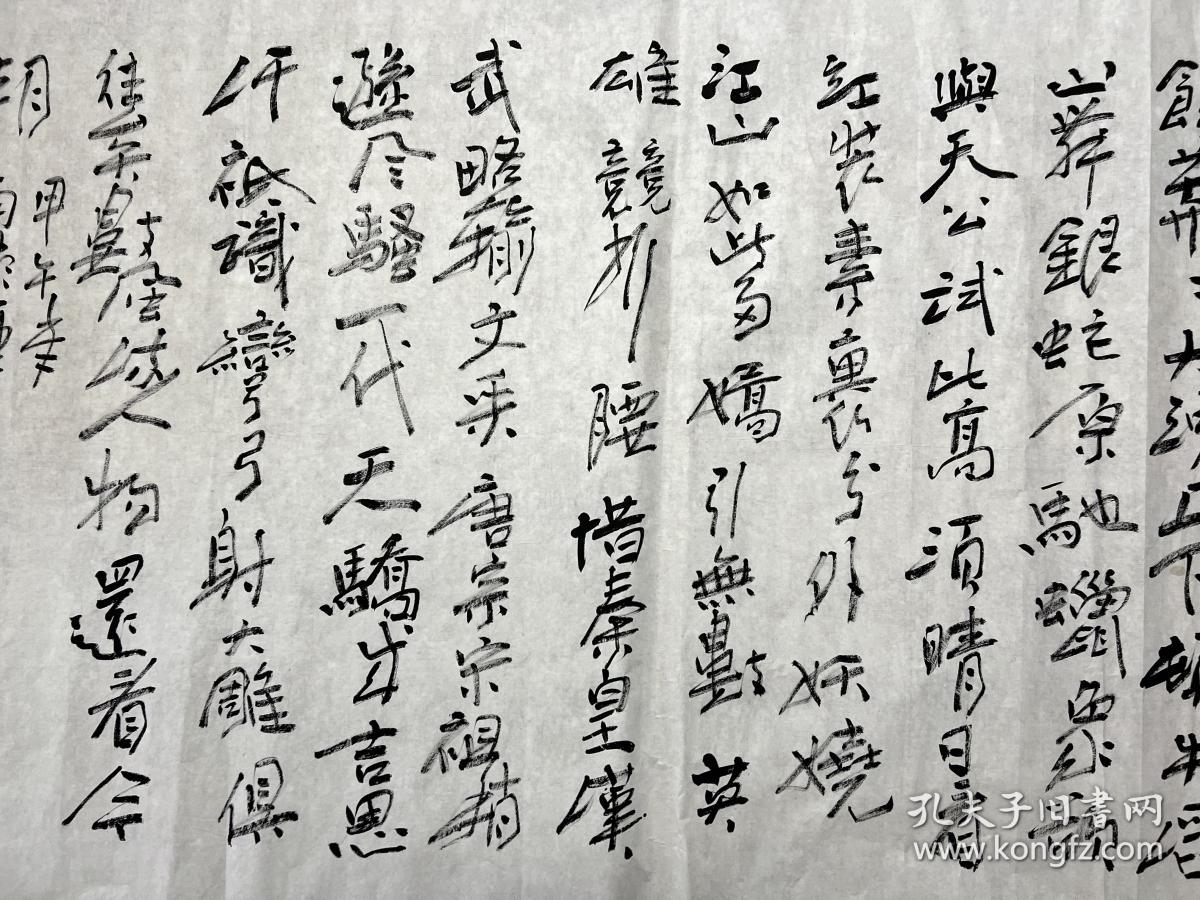 餘莽〻大河上下頓失滔
山舞銀蛇原馳蠟象欲
與天公試比高須晴日看
紅裝素裹分外妖嬈
江山如此多嬌引無數英
雄競折腰惜秦皇漢
武略輸文采唐宗宋祖稍
遜風騷一代天驕成吉思
汗祇識彎弓射大雕俱
往矣數風流人物還看今
朝
甲午
孔夫子旧書网
www.kongfz.com